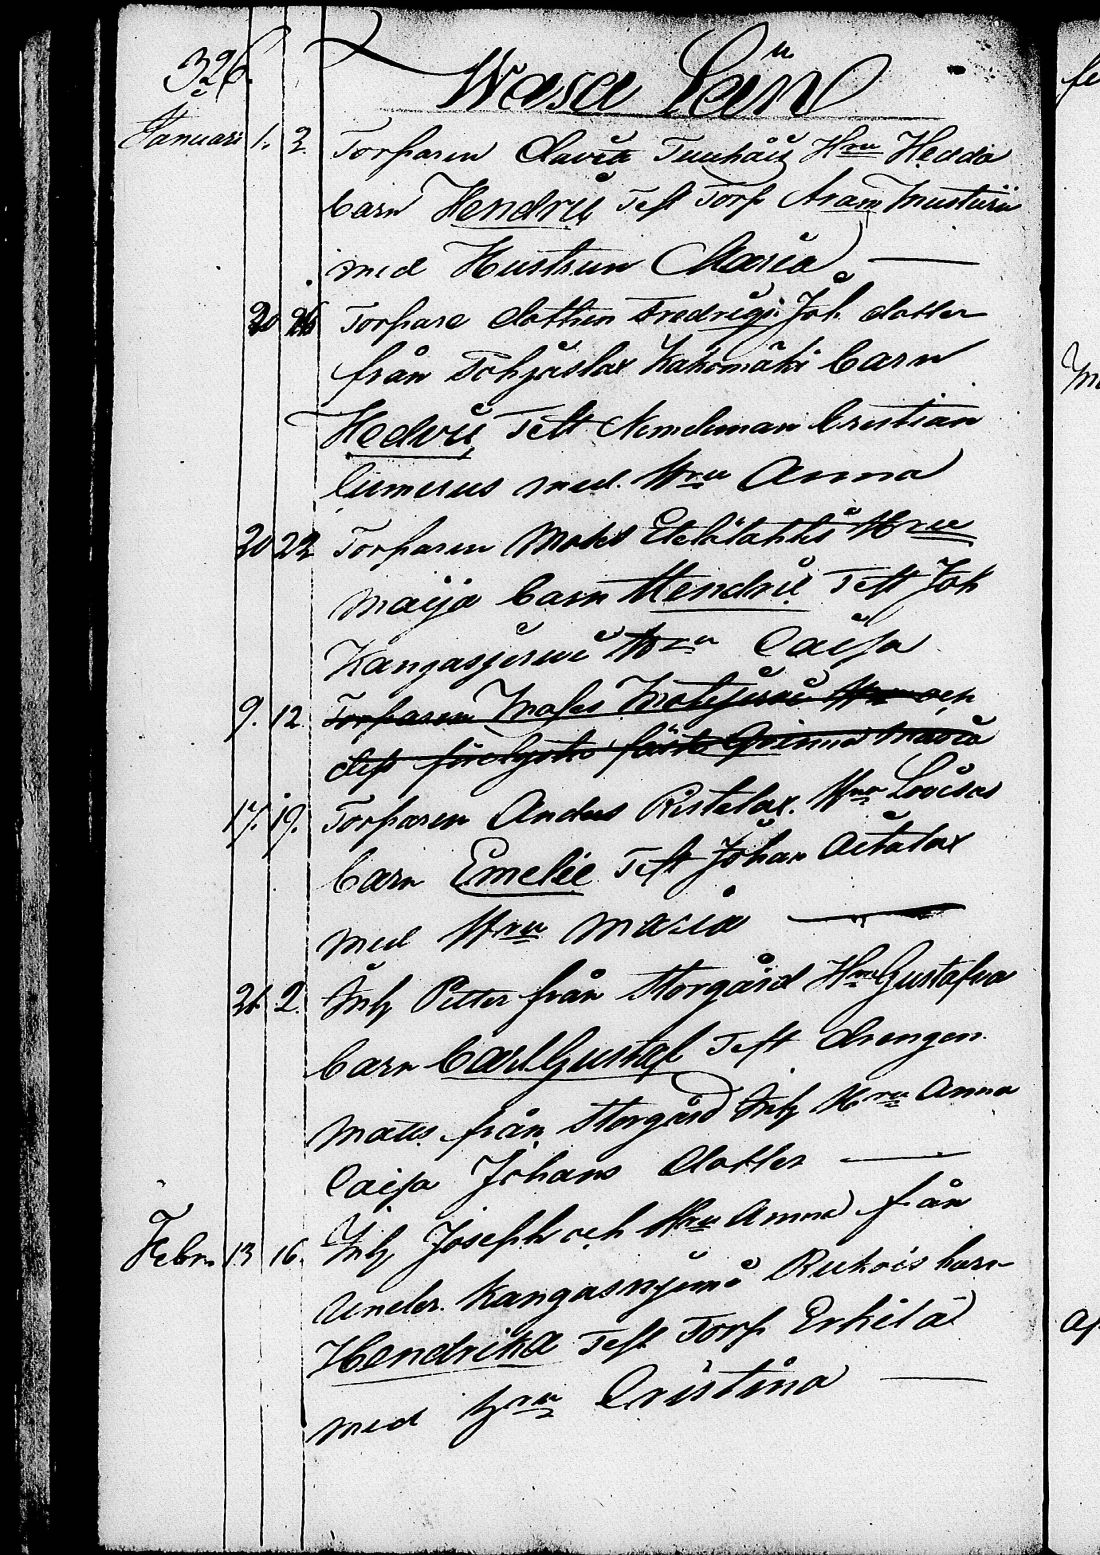 326.
Wasa Län
Januari 1. 2. Torparen David Hru Hedda
barn Hendric Test Torp Aram
med Hustrun Maria
20 26 Torpare dotten Fredrega Joh dotter
från Pohjaslax Kakomäki barn
Hedvi Test Nemdeman Cristian
Cumerus med Hru Anna
20 22 Torparen Moses Etelälahti Hru
Maija barn Hendric Test Joh
Kangasjerwi Hru Caisa
9. 12 Torparen Moses och
Maria
17. 19. Torparen Anders Ristalax. Hru Lovisas
barn Emelie Test Johan Aitalax
med Hru Maria
21 2. Inh Petter från Storgård Hru Gustafva
barn Carl Gustaf Test drengen
Matts från Storgård Inh Hru Anna
Caisa Johans dotter
Febr. 13 16. Inh Joseph och Hru Anna från
under barn
Hendrika Test Torp Erkilä
med hru Cristina